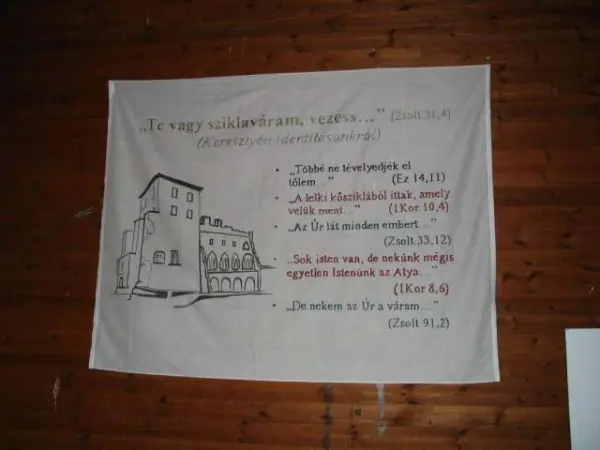 „Te vagy sziklaváram, vezess...” (Zsolt.31,4)
(Keresztyén identitásunkról)
• „Többé ne tévelyedjék el
tőlem...” (Ez 14,11)
• „A lelki kősziklából ittak, amely
velük ment...” (1Kor 10,4)
• „Az Úr lát minden embert...”
(Zsolt 33,12)
• „Sok isten van, de nekünk mégis
egyetlen Istenünk az Atya...”
(1Kor 8,6)
• „De nekem az Úr a váram...”
(Zsolt 91,2)